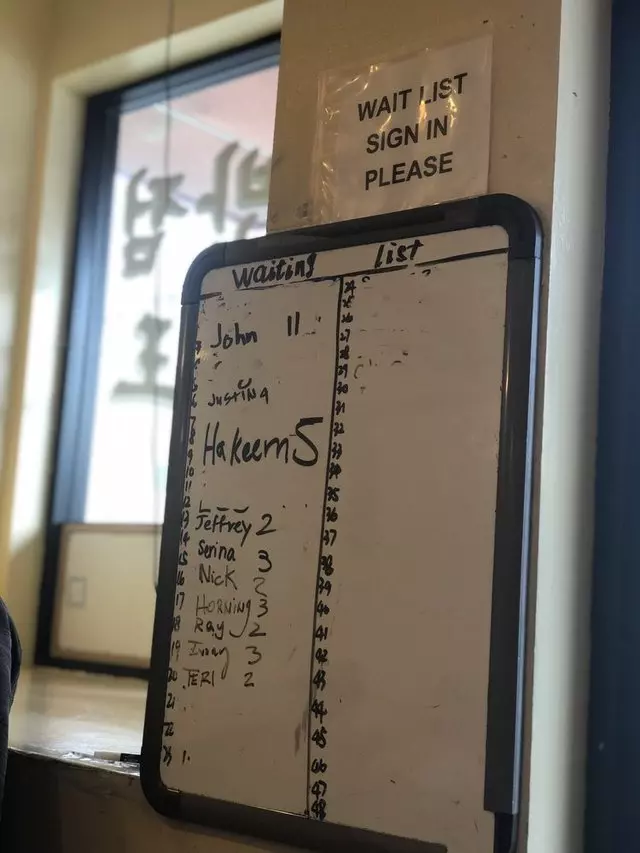 WAIT LIST
SIGN IN
PLEASE
Waiting List
John 11
Justina
Hakeem 5
Jeffrey 2
Serina 3
Nick 2
HORNING 3
Ray 2
3
TERI 2
13
14
15
16
17
18
19
20
21
22
23 1.
24
25
26
27
28
29
30
31
32
33
34
35
36
37
38
39
40
41
42
43
44
45
46
47
48